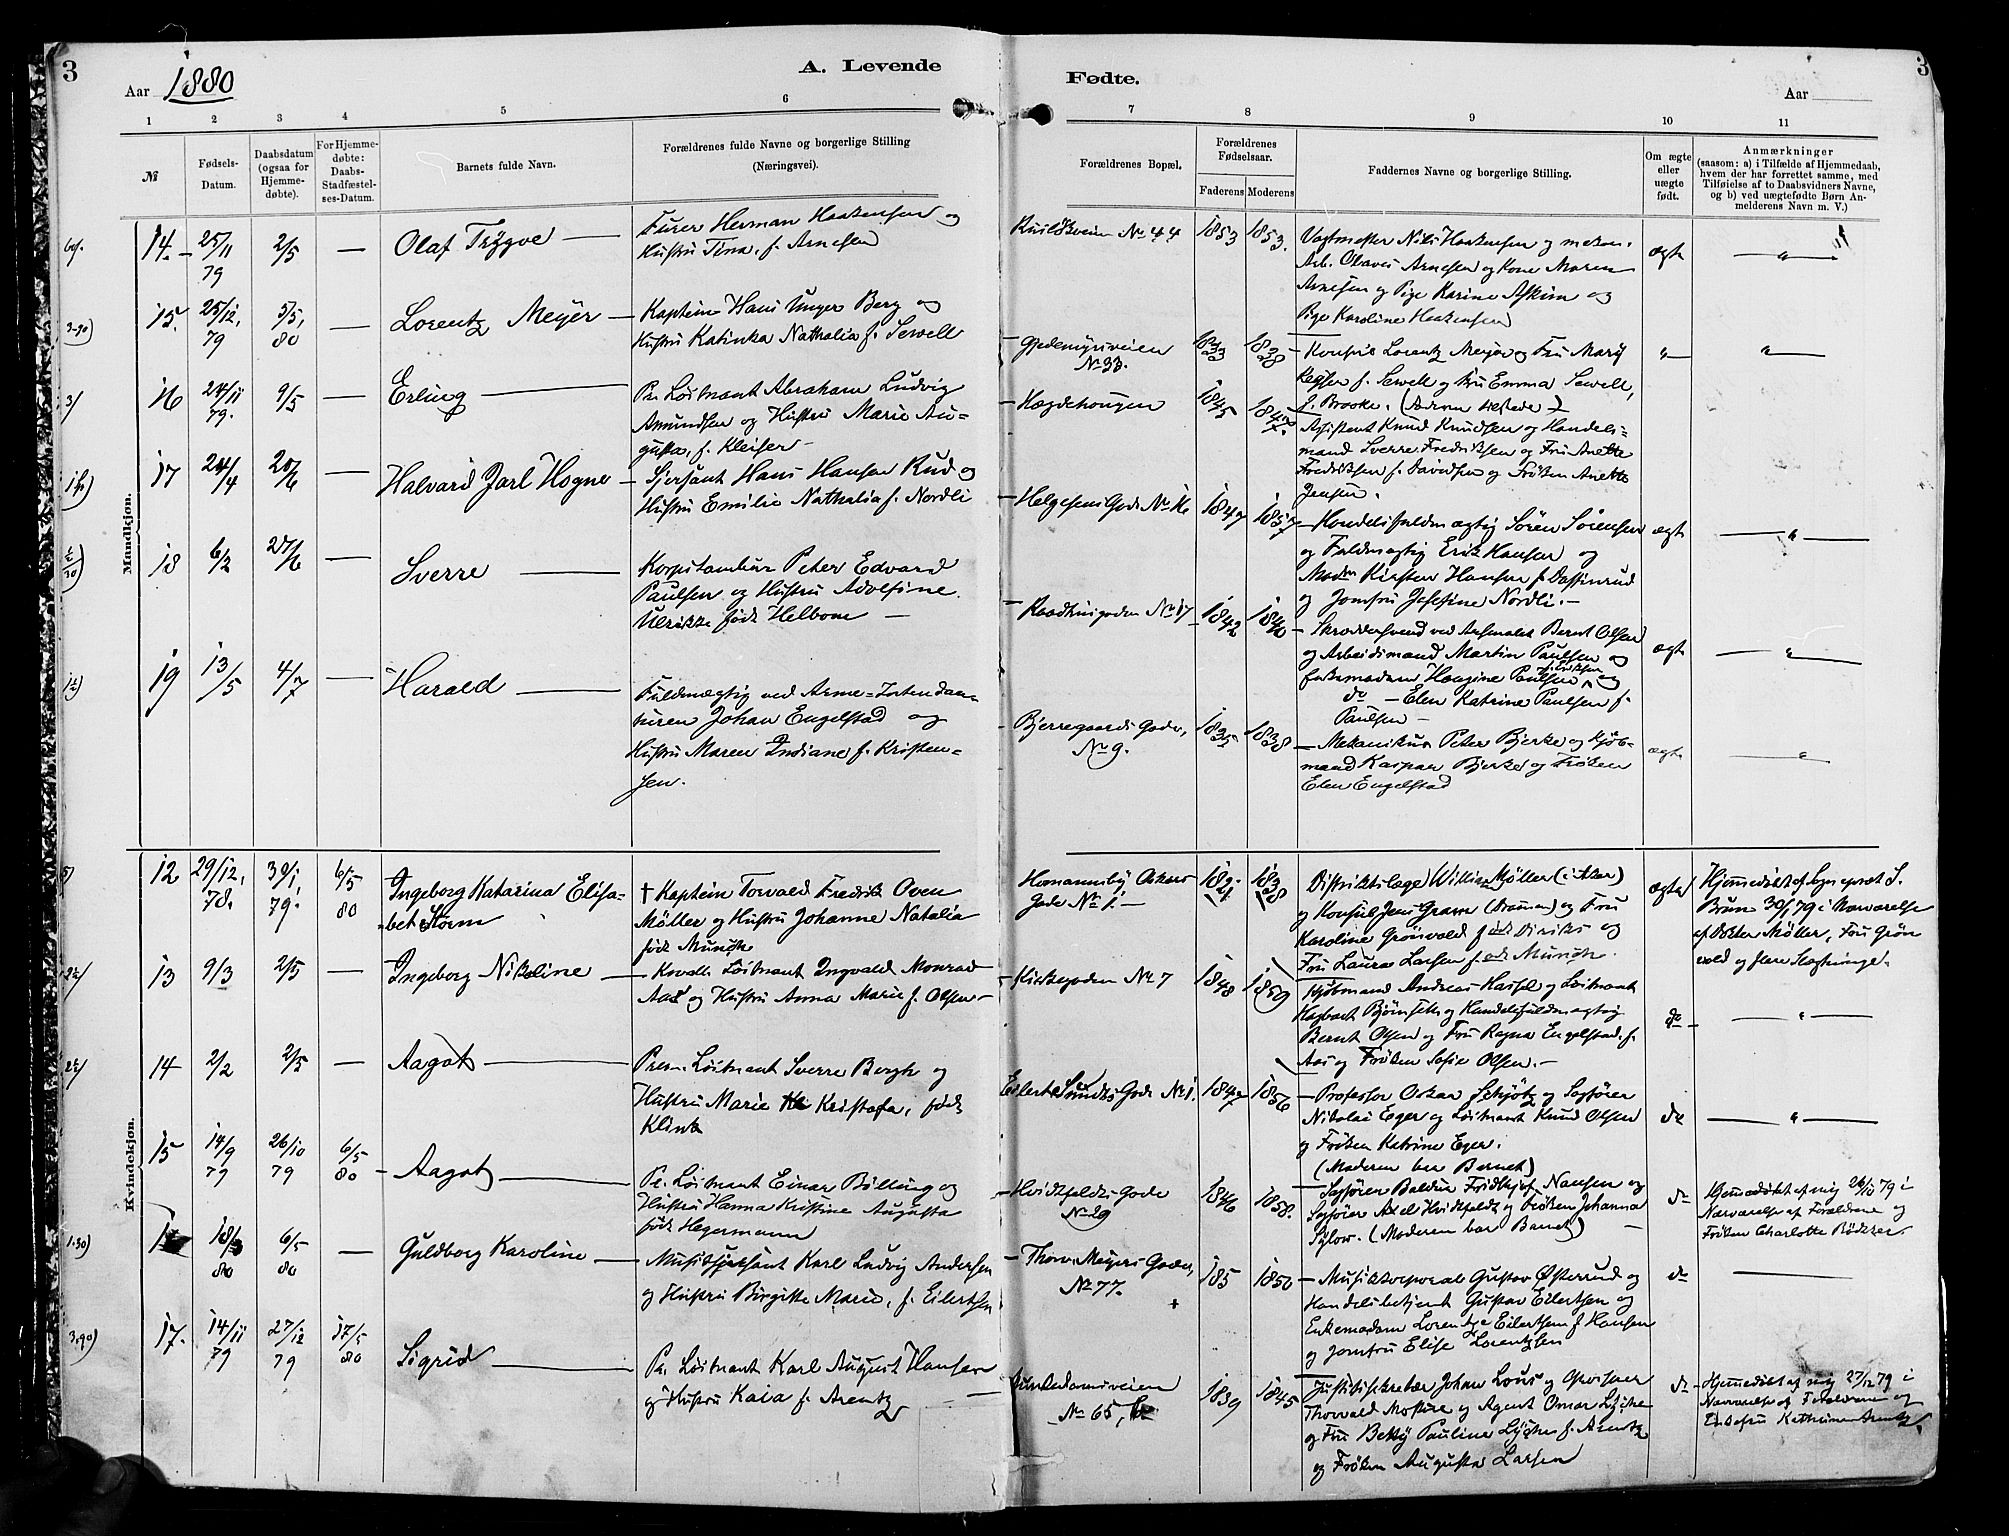 3
3
A. Levende
Fødte.
Aar 1880
Aar
1 2 3 4 5 6 7 8 9 10 11
№
Fødsels-Datum.
Daabsdatum (ogsaa for Hjemmedøbte).
For Hjemmedøbte: Daabs-Stadfæstelses-Datum.
Barnets fulde Navn.
Forældrenes fulde Navne og borgerlige Stilling
(Næringsvei).
Forældrenes Bopæl.
Forældrenes Fødselsaar.
Faderens
Moderens
Faddernes Navne og borgerlige Stilling.
Om ægte eller uægte født.
Anmærkninger
(saasom: a) i Tilfælde af Hjemmedaab,
hvem der har forrettet samme, med
Tilføielse af to Daabsvidners Navne,
og b) ved uægtefødte Børn Anmelderens Navn m. V.)
Mandkjøn.
14. 25/11 79 2/5 — Olaf Trygve
Furer Herman Haakensen og
Hustru Tina, f. Arnesen
1853 1853.
Vagtmester Nils Haakensen og mekan.
Arb. Olaves Arnesen og Kone Maren
Arnesen og Pige Karine Askim og
Pige Karoline Haakensen
ægte
15. 25/12 79 5/5 80 — Lorentz Meyer
Kaptein Hans Meyer Berg og
Hustru Katinka Nathalia f. Sewell
Gjedemyrsveien
No 33.
1833 1838
Konsul Lorentz Meyer og Fru Mary
Keyser f. Sewell og Fru Emma Sewell,
f. Brooke.
16 24/11 79. 9/5 — Erling
Pr. Løitnant Abraham Ludvig
Amundsen og Hustru Marie Augusta, f. Kleiser
Hægdehougen
1845
Assistent Knud Knudsen og Handelsmand Sverre Fredriksen og Fru Anette
Fredriksen f. Davidsen og Frøken Anette
Jensen.
17 24/4 20/6 — Halvard Jarl Hogne
Sjersant Hans Hansen Rud og
Hustru Emilie Nathalia f. Nordli
Helgesens Gade No 16
1847 1857
Handelsfuldmægtig Søren Sørensen
og Fuldmægtig Erik Hansen og
Madm Kirsten Hansen f.
og Jomfru Josefine Nordli. —
ægte
18 6/2 27/6 — Sverre
Korpstambur Peter Edvard
Paulsen og Hustru Adolfine
Ulrikke født Helbom —
Raadhusgaden No 17
1842 1840
Skræddersvend ved Arsenalet Bernt Olsen
og Arbeidsmand Martin Paulsen og
Enkemadam Hougine Paulsen og
do — Elen Katrine Paulsen f.
Paulsen —
ægte
19 13/5 4/7 — Harald
Fuldmægtig ved Arme-Intendanturen Johan Engelstad og
Hustru Maren Indiane f. Kristensen.
Bjerregaards Gade,
No 9.
1835 1838
Mekanikus Peter Bjerke og Kjøbmand Kaspar Bjerke og Frøken
Elen Engelstad
ægte
Kvindekjøn.
12 29/12 78. 30/1 79. 6/5 80 Ingeborg Katarina Elisabet Storm
† Kaptein Torvald Fredrik Oven
Møller og Hustru Johanne Natalia
født Munch
Homannsby Oskars
Gade No 1. —
1838
Distriktslæge William Møller
og Konsul Jens Gram (Drammen) og Fru
Karoline Grønvold født Diriks og
Fru Laura Larsen født Munch.
ægte
Hjemmedøbt af Sogneprest J.
Brun 30/1 79 i Nærværelse
af Dokter Møller, Fru Grønvold og flere Slægtninge.
13 9/3 2/5 — Ingeborg Nikoline
Kavall. Løitnant Ingvald Monrad
Aas og Hustru Anna Marie f. Olsen
Kirkegaden No 7
1848 1859
Kjøbmand Andreas Hassel og Løitnant
Bjørnseth og Handelsfuldmægtig
Bernt Olsen og Fru Ragna Engelstad f.
Aas og Frøken Sofie Olsen. —
do
14 2/2 2/5 — Aagot
Prem. Løitnant Sverre Bergh og
Hustru Marie Kristofa, født
Klink
Eilert Sundts Gade No 1.
1847 1856
Professor Oskar Schjøtz og Sagfører
Nikolai Eger og Løitnant Knud Olsen
og Frøken Katrine Eger.
(Moderen bar Barnet)
do
15 14/9 79 26/10 79 6/5 80 Aagot
Pr. Løitnant Einar Bølling og
Hustru Hanna Kristine Augusta
født Hegermann
Hvidtfeldts Gade
No 29
1846 1858.
Sagfører Baldur Fridtjof Nansen og
Sagfører Axel Hvidtfeldt og Frøken Johanna
Sylow. (Moderen bar Barnet)
do
Hjemmedøbt af mig 26/10 79 i
Nærværelse af Forældrene og
Frøken Charlotte Rødtzer.
80 6/5 80 — Guldborg Karoline
Musiksjersant Karl Ludvig Andersen
og Hustru Birgitte Marie, f. Eilertsen
Thorv. Meyers Gade,
No 77.
185 1850
Musikkorporal Gustav Østerud og
Handelsbetjent Gustav Eilertsen og
Enkemadam Lorentze Eilertsen f. Hansen
og Jomfru Elise Lorentzsen
do
17. 14/11 79 27/12 79 17/5 80 Sigrid
Pr. Løitnant Karl August Hansen
og Hustru Kaia f. Arentz
No 65,
1839 1845
Justitssekretær Johan Lous og
Thorvald og Agent Omar Lyche
og Fru Betsy Pauline Lyche f. Arentz
og Frøken Augusta Larsen
do
Hjemmedøbt af mig 27/12 79 i
Nærværelse af Forældrene og
Enkefru Kathrine Arentz